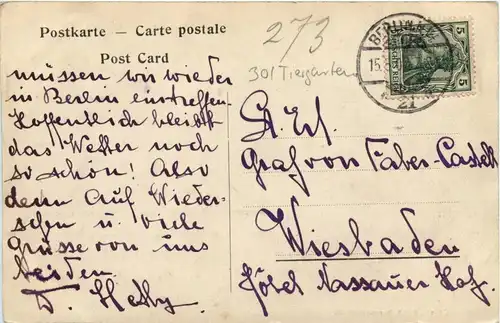 Postkarte — Carte postale
Post Card
müssen wir wieder
in Berlin eintreffen.
Hoffentlich bleibt
das Wetter noch
so schön! Also
denn Auf Wieder-
sehen u. viele
Grüsse von uns
beiden.
D. Hetty.
273
301 Tiergarten
BERLIN
15.
5
5
DEUTSCHES REICH
Graf von Faber-Castell
Wiesbaden
Hôtel Nassauer Hof.